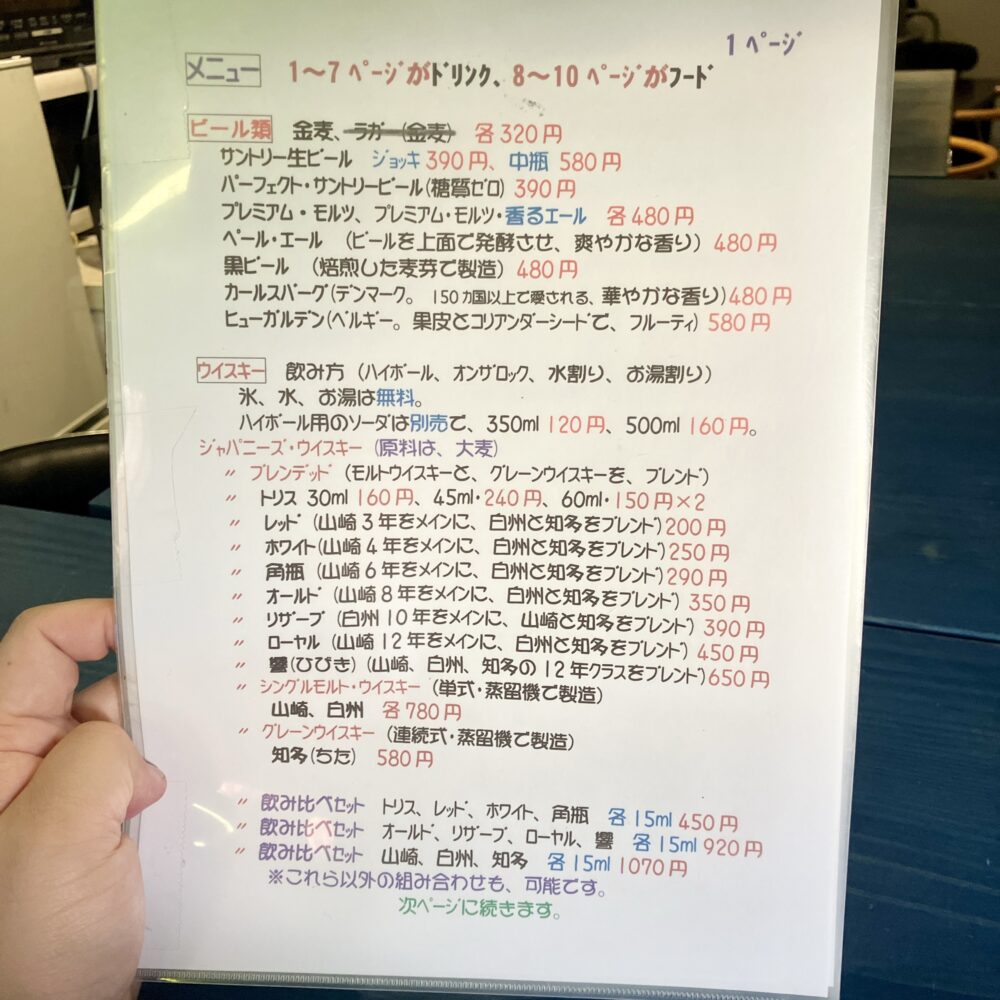 1 ページ
メニュー 1～7 ページがドリンク、8～10 ページがフード
ビール類 金麦、ラガー(金麦) 各320円
サントリー生ビール ジョッキ 390円、中瓶 580円
パーフェクト・サントリービール(糖質ゼロ) 390円
プレミアム・モルツ、プレミアム・モルツ・香るエール 各480円
ペール・エール (ビールを上面で発酵させ、爽やかな香り) 480円
黒ビール (焙煎した麦芽で製造) 480円
カールスバーグ(デンマーク。150カ国以上で愛される、華やかな香り)480円
ヒューガルデン(ベルギー。果皮とコリアンダーシードで、フルーティ) 580円
ウイスキー 飲み方 (ハイボール、オンザロック、水割り、お湯割り)
氷、水、お湯は無料。
ハイボール用のソーダは別売で、350ml 120円、500ml 160円。
ジャパニーズ・ウイスキー (原料は、大麦)
〃 ブレンデッド (モルトウイスキーと、グレーンウイスキーを、ブレンド)
〃 トリス 30ml 160円、45ml・240円、60ml・150円×2
〃 レッド (山崎3年をメインに、白州と知多をブレンド)200円
〃 ホワイト(山崎4年をメインに、白州と知多をブレンド)250円
〃 角瓶 (山崎6年をメインに、白州と知多をブレンド)290円
〃 オールド (山崎8年をメインに、白州と知多をブレンド) 350円
〃 リザーブ (白州10年をメインに、山崎と知多をブレンド) 390円
〃 ローヤル (山崎12年をメインに、白州と知多をブレンド) 450円
〃 響(ひびき) (山崎、白州、知多の12年クラスをブレンド)650円
〃 シングルモルト・ウイスキー (単式・蒸留機で製造)
山崎、白州 各780円
〃 グレーンウイスキー (連続式・蒸留機で製造)
知多(ちた) 580円
〃 飲み比べセット トリス、レッド、ホワイト、角瓶 各15ml 450円
〃 飲み比べセット オールド、リザーブ、ローヤル、響 各15ml 920円
〃 飲み比べセット 山崎、白州、知多 各15ml 1070円
※これら以外の組み合わせも、可能です。
次ページに続きます。